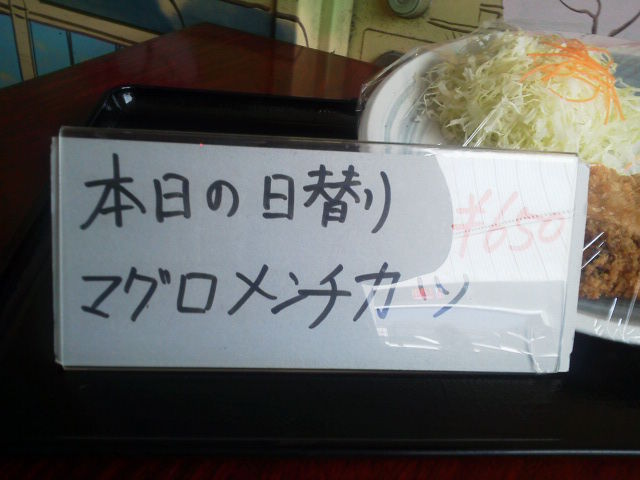 本日の日替り
¥650
マグロメンチカツ